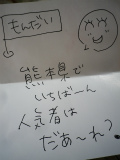 もんだい
熊本県で
いちばーん
人気者は
だぁ〜れ?